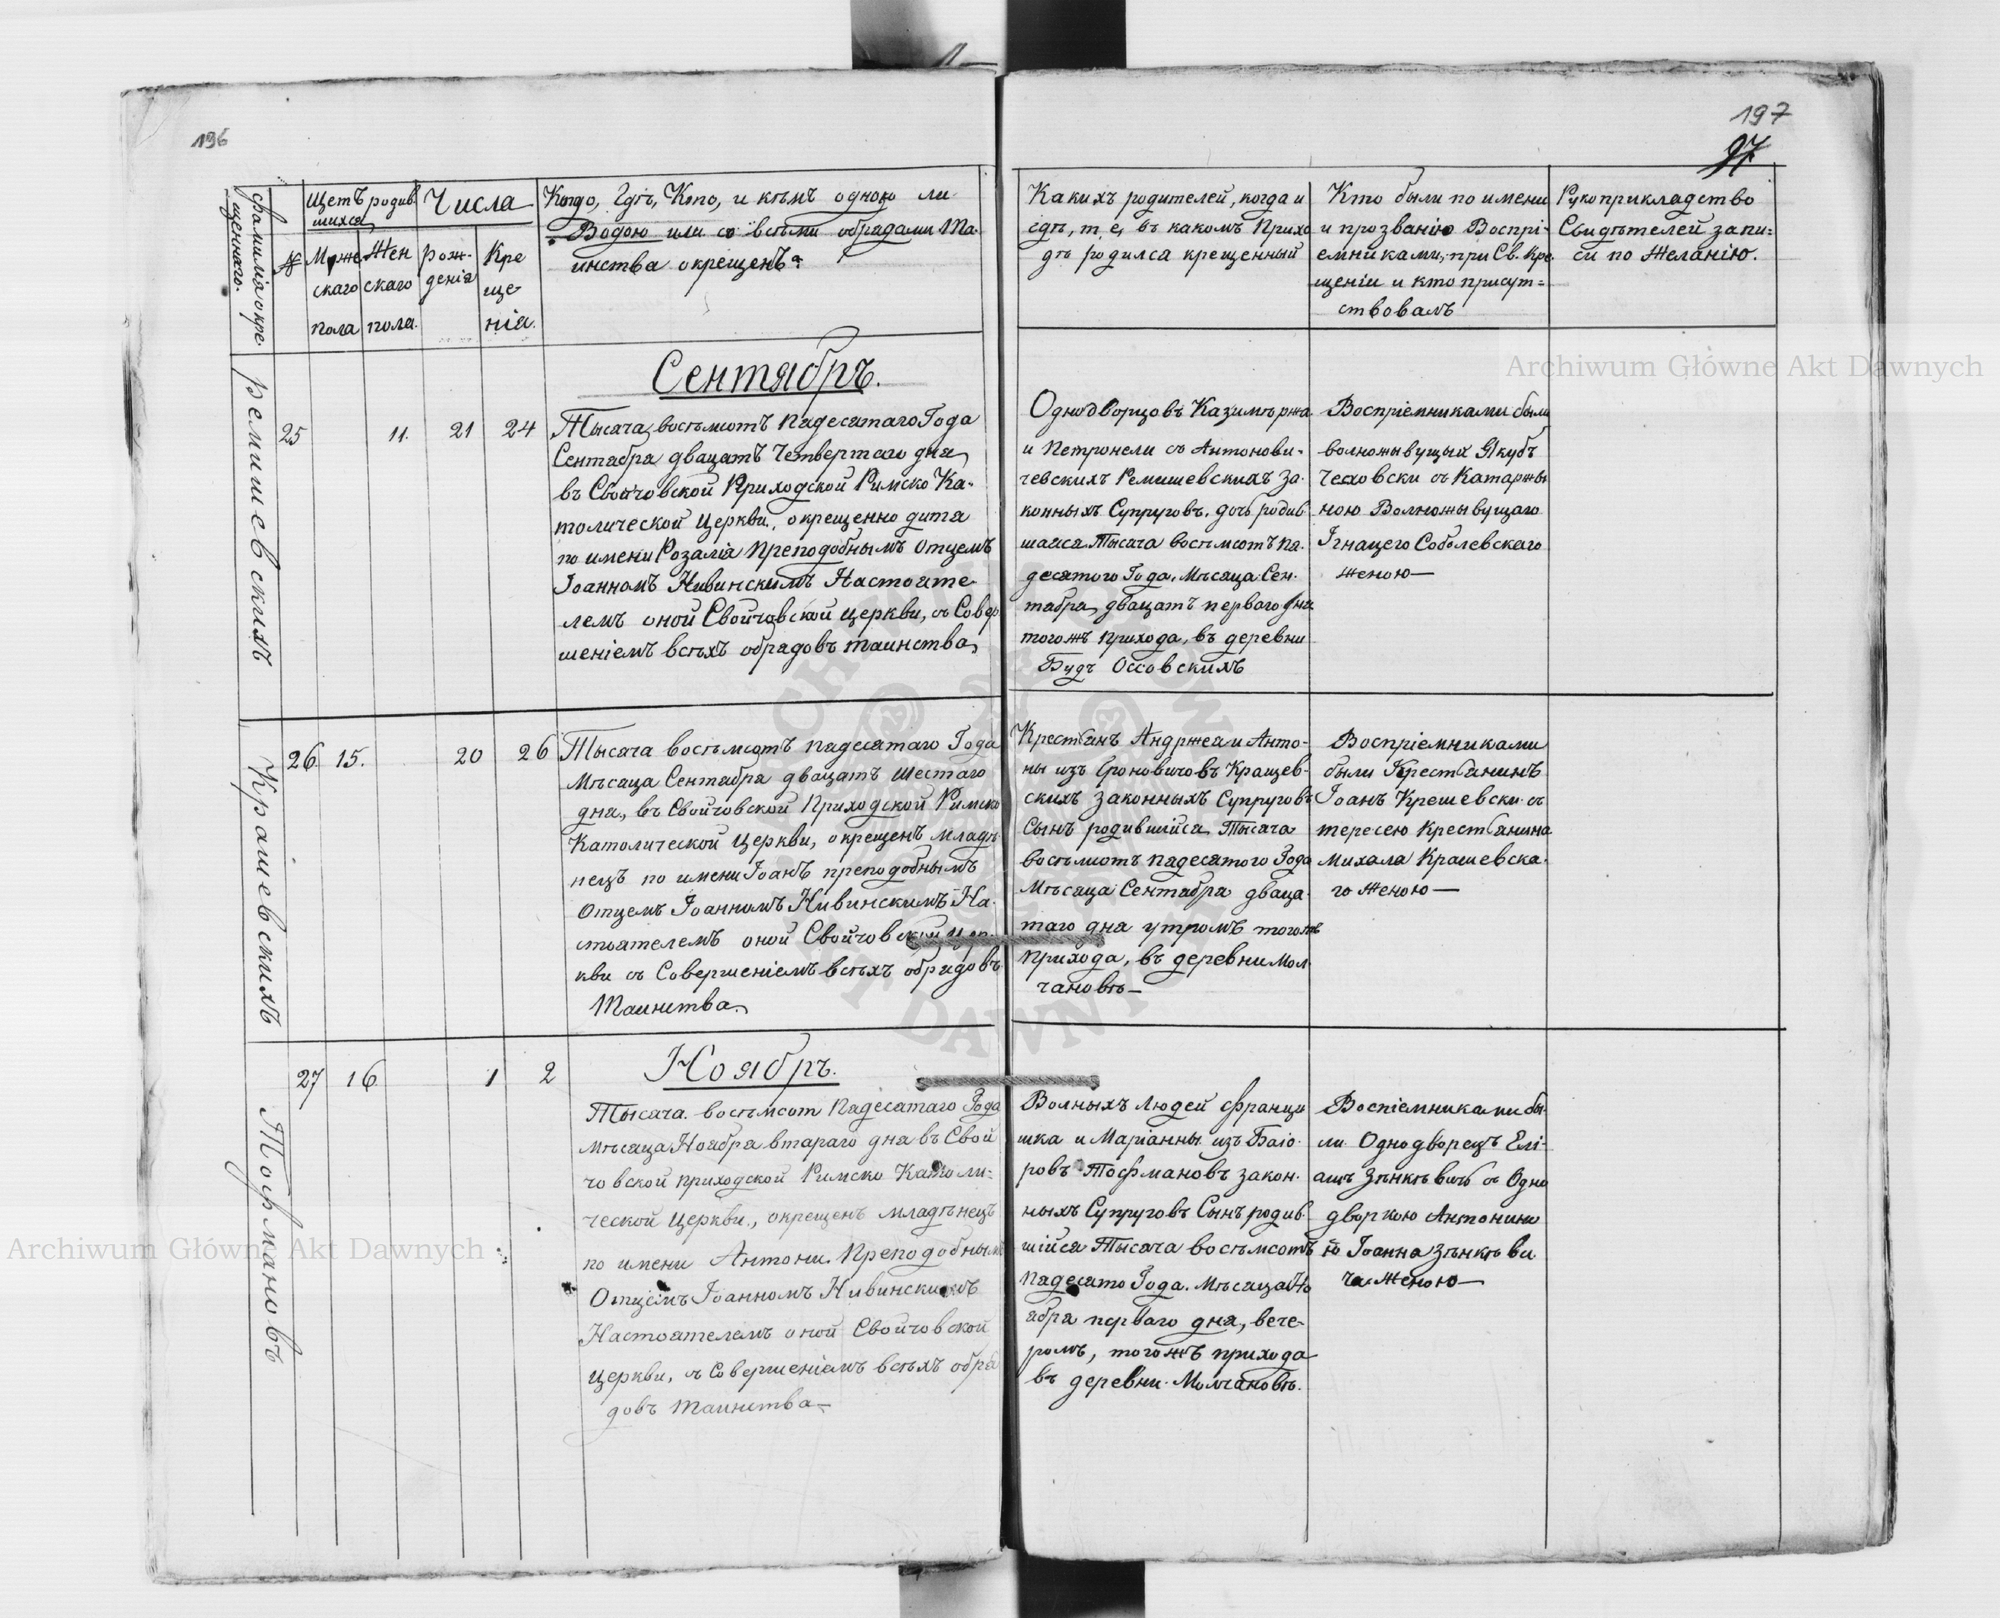 196
197
97
Фамилія окре
щеннаго.
№
Щетъ родив
шихся
Муже
скаго
пола
Жен
скаго
пола.
Числа
рож-
денія
Кре
ще
нія.
Когда, Гдѣ, Кто, и кѣмъ одною ли
Водою или со всѣми обрядами Та-
инства окрещенъ
Какихъ родителей, когда и
гдѣ, т, е, въ какомъ Прихо
дѣ родился крещенный
Кто были по имени
и прозванію Воспрі-
емниками, при Св. Кре
щеніи и кто присут=
ствовалъ
Рукоприкладство
Свидѣтелей запи=
си по Желанію.
Archiwum Główne Akt Dawnych
Ремишевскихъ
25
11.
21
24
Сентябрь.
Тысяча восѣмсотъ падесятаго Года
Сентября двацатъ Четвертаго дня,
въ Свойчовской Приходской Римско Ка-
толической Церкви, окрещенно дитя
по имени Розалія Преподобнымъ Отцемъ
Іоанномъ Нивинскимъ Настояте-
лемъ оной Свойчовской Церкви, съ Совер
шеніемъ всѣхъ обрядовъ таинства,
Однодворцовъ Казимѣржа
и Петронели съ Антонови-
чевскихъ Ремишевскихъ за-
конныхъ Супруговъ, дочь родив
шаяся Тысяча восѣмсотъ па-
десятого Года, Мѣсяца Сен-
тября, двацатъ перваго дня
тогожъ Прихода, въ деревни
Будъ Оссовскихъ
Воспріемниками были
волноживущыхъ Якубъ
Чеховски съ Катаржы
ною Волноживущаго
Ігнацего Соболевскаго
женою—
Крашевскихъ
26
15.
20
26
Тысяча восѣмсотъ падесятаго Года
Мѣсяца Сентября двацатъ Шестаго
дня, въ Свойчовской Приходской Римско
Католической Церкви, окрещенъ Младѣ-
нецъ по имени Іоанъ преподобнымъ
Отцемъ Іоанномъ Нивинскимъ На-
стоятелемъ оной Свойчовской Цер-
кви съ Совершеніемъ всѣхъ обрядовъ
Таинства,
Крестьянъ Андржея и Анто-
ны изъ Броновичовъ Кращев-
скихъ законныхъ Супруговъ
Сынъ родившійся Тысяча
восѣмсотъ падесятого Года
Мѣсяца Сентября дваца-
таго дня утромъ тогожъ
Прихода, въ деревни Мол-
чановѣ—
Воспріемниками
были Крестьянинъ
Іоанъ Крешевски съ
тересею Крестьянина
Михала Крашевска-
го Женою—
Тофмановъ
27
16
1
2
Ноябрь.
Тысяча восѣмсот Падесятаго Года
Мѣсяца Ноября втараго дня въ Свой
човской приходской Римско Католи=
ческой Церкви, окрещенъ младѣнецъ
по имени Антони. Преподобнымъ
Отцемъ Іоанномъ Нивинскимъ
Настоятелемъ оной Свойчовской
Церкви, съ Совершеніемъ всѣхъ обря
довъ таинства—
Волныхъ Людей Францы
шка и Маріанны изъ Баіо-
ровъ Тофмановъ закон-
ныхъ Супруговъ Сынъ родив-
шійся Тысяча восѣмсотъ
Падесято Года. Мѣсяца Но
ября перваго дня, вече-
ромъ, тогожъ прихода
въ деревни Молчановѣ.
Воспіемниками бы-
ли Однодворецъ Елі-
ашъ Зѣнкѣвичъ съ Одно
дворкою Антонино
й Іоанна Зѣнкѣви
ча Женою—
Archiwum Główne Akt Dawnych